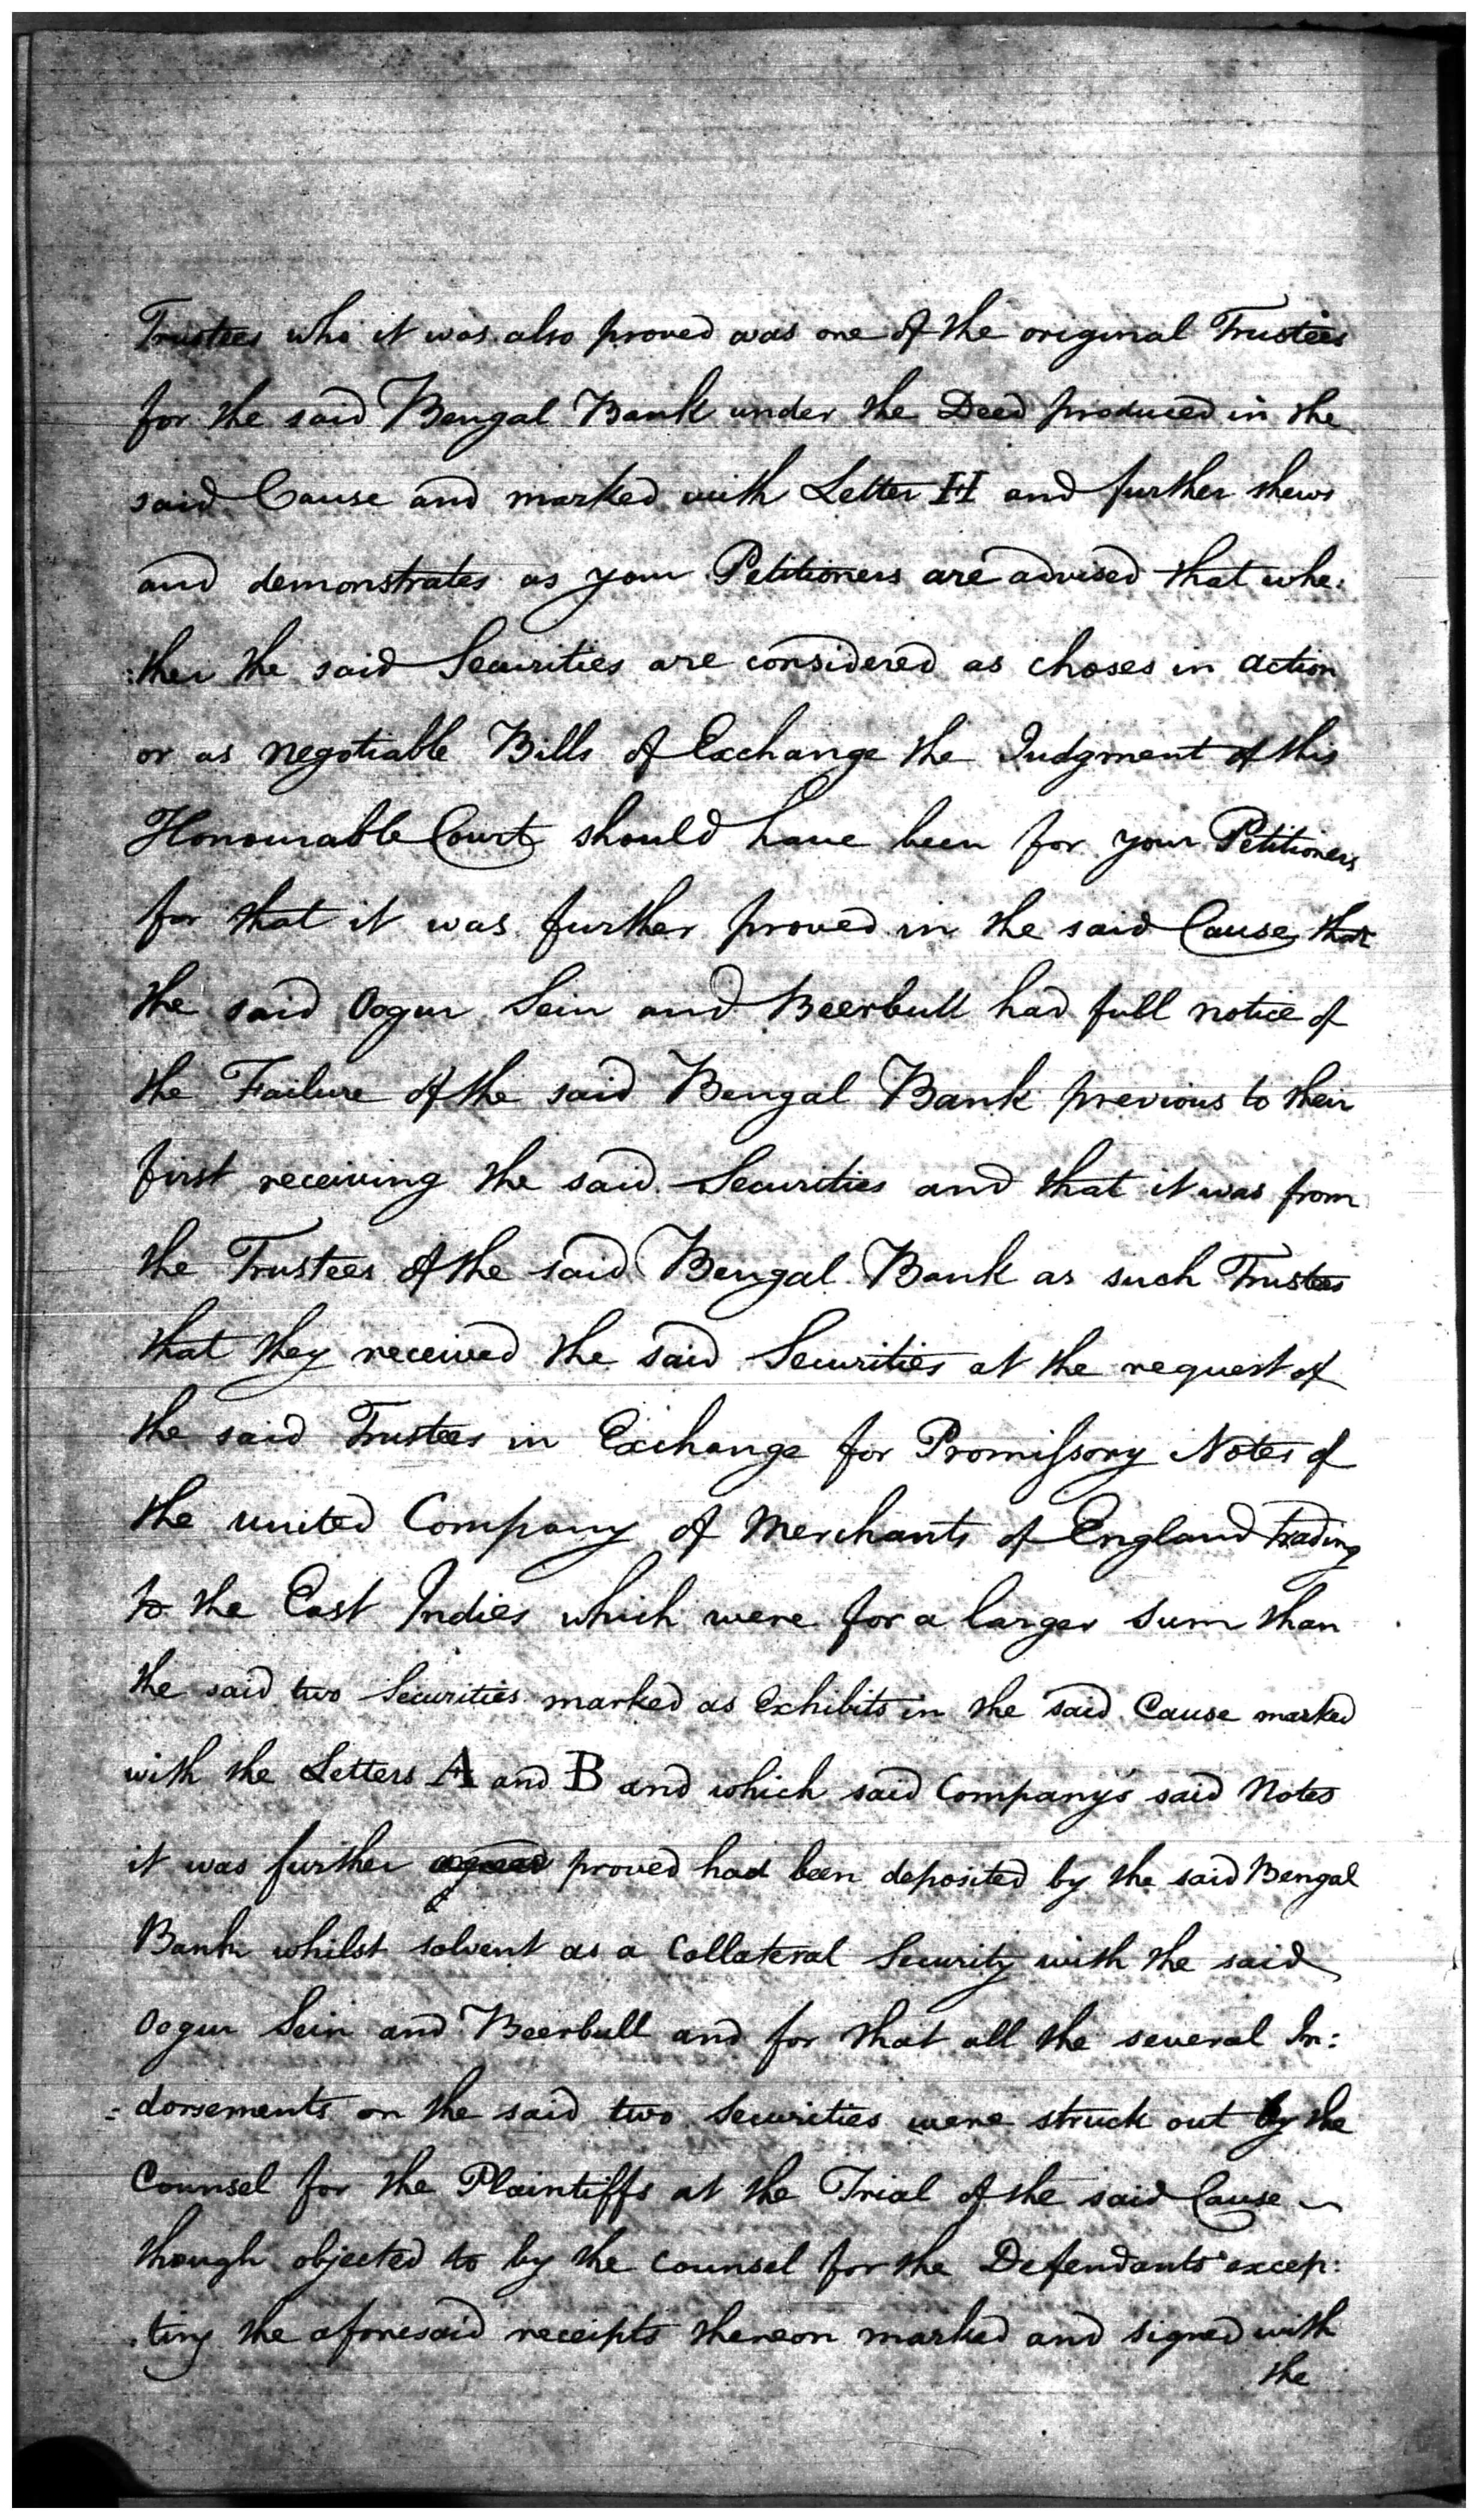 Trustees who it was also proved was one of the original Trustees
for the said Bengal Bank under the Deed produced in the
said Cause and marked with Letter H and further shews
and demonstrates as your Petitioners are advised that whe:
:ther the said Securities are considered as choses in action
or as negotiable Bills of Exchange the Judgment of this
Honourable Court should have been for your Petitioners
for that it was further proved in the said Cause that
the said Oogur Sein and Beerbull had full notice of
the Failure of the said Bengal Bank previous to their
first receiving the said Securities and that it was from
the Trustees of the said Bengal Bank as such Trustees
that they received the said Securities at the request of
the said Trustees in Exchange for Promissory Notes of
the united Company of Merchants of England trading
to the East Indies which were for a larger Sum than
the said two Securities marked as Exhibits in the said Cause marked
with the Letters A and B and which said Company's said Notes
it was further agreed proved had been deposited by the said Bengal
Bank whilst solvent as a Collateral Security with the said
Oogur Sein and Beerbull and for that all the several In:
:dorsements on the said two Securities were struck out by the
Counsel for the Plaintiffs at the Trial of the said Cause
though objected to by the Counsel for the Defendants excep:
:ting the aforesaid receipts thereon marked and signed with
the